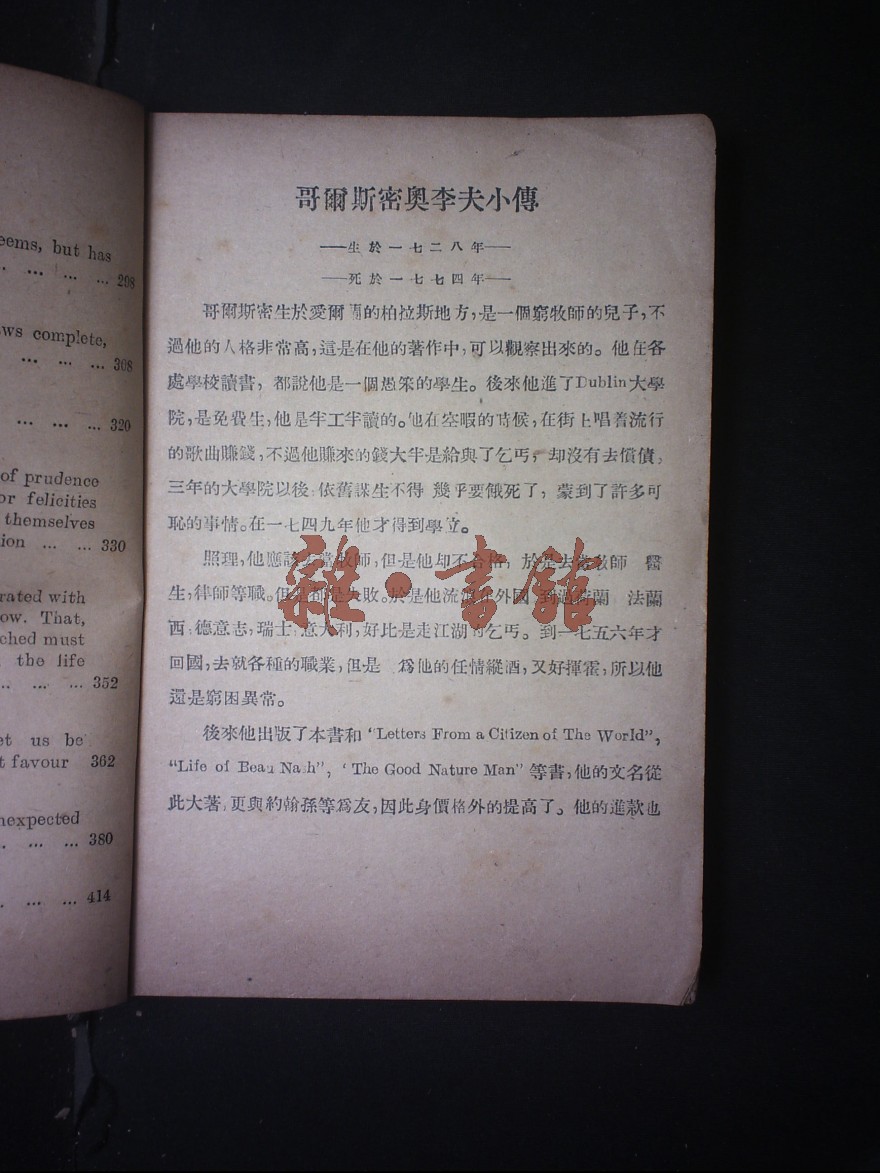 eems, but has
.. ... ... ... 298
ws complete,
... ... ... 308
... ... ... 320
of prudence
or felicities
themselves
tion ... ... 330
rated with
ow. That,
ched must
the life
.. ... ... 352
et us be
t favour 362
nexpected
.. ... ... 380
. ... ... 414
哥爾斯密奧李夫小傳
——生於一七二八年——
——死於一七七四年——
哥爾斯密生於愛爾蘭的柏拉斯地方,是一個窮牧師的兒子,不
過他的人格非常高,這是在他的著作中,可以觀察出來的。他在各
處學校讀書,都說他是一個愚笨的學生。後來他進了Dublin大學
院,是免費生,他是半工半讀的。他在空暇的時候,在街上唱着流行
的歌曲賺錢,不過他賺來的錢大半是給與了乞丐,却沒有去償債。
三年的大學院以後,依舊謀生不得 幾乎要餓死了,蒙到了許多可
恥的事情。在一七四九年他才得到學位。
照理,他應該去當牧師,但是他却不合格,於是去為教師 醫
生,律師等職。但是都是失敗。於是他流浪在外國 到過荷蘭 法蘭
西,德意志,瑞士,意大利,好比是走江湖的乞丐。到一七五六年才
回國,去就各種的職業,但是 爲他的任情縱酒,又好揮霍,所以他
還是窮困異常。
後來他出版了本書和“Letters From a Citizen of The World”,
“Life of Beau Nash”, ‘The Good Nature Man” 等書,他的文名從
此大著,更與約翰孫等爲友,因此身價格外的提高了。他的進款也
雜·書館